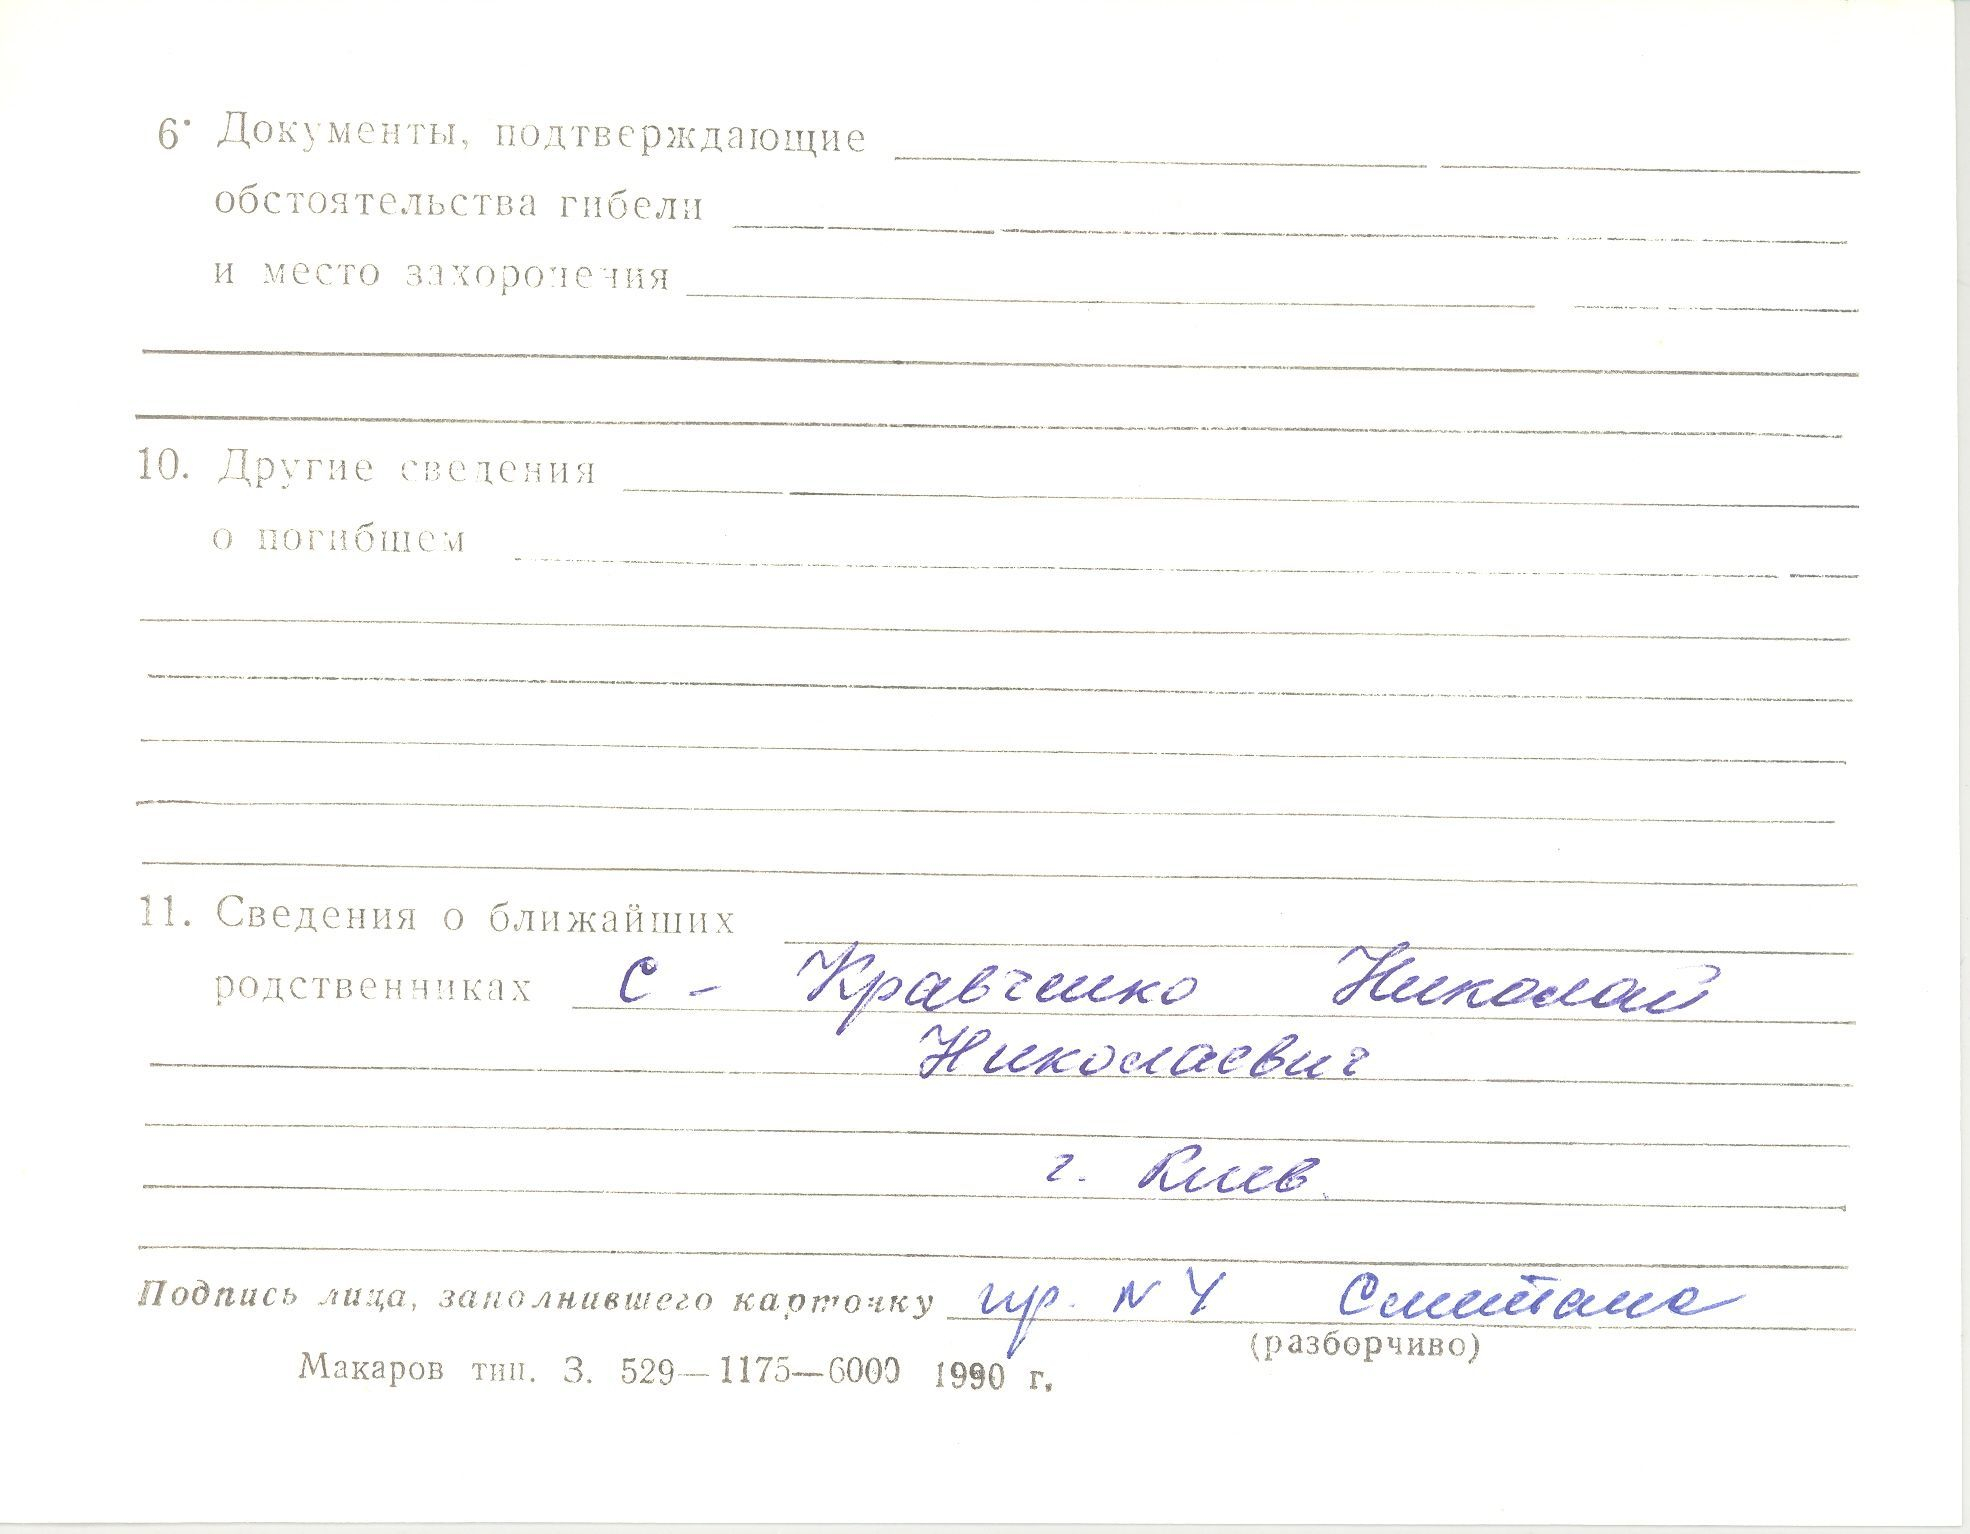 6. Документы, подтверждающие
обстоятельства гибели
и место захоронения
10. Другие сведения
о погибшем
11. Сведения о ближайших
родственниках с - Кравченко Николай
Николаевич
г. Киев.
Подпись лица, заполнившего карточку гр. N 4 Сметана
(разборчиво)
Макаров тип. З. 529—1175—6000 1990 г.